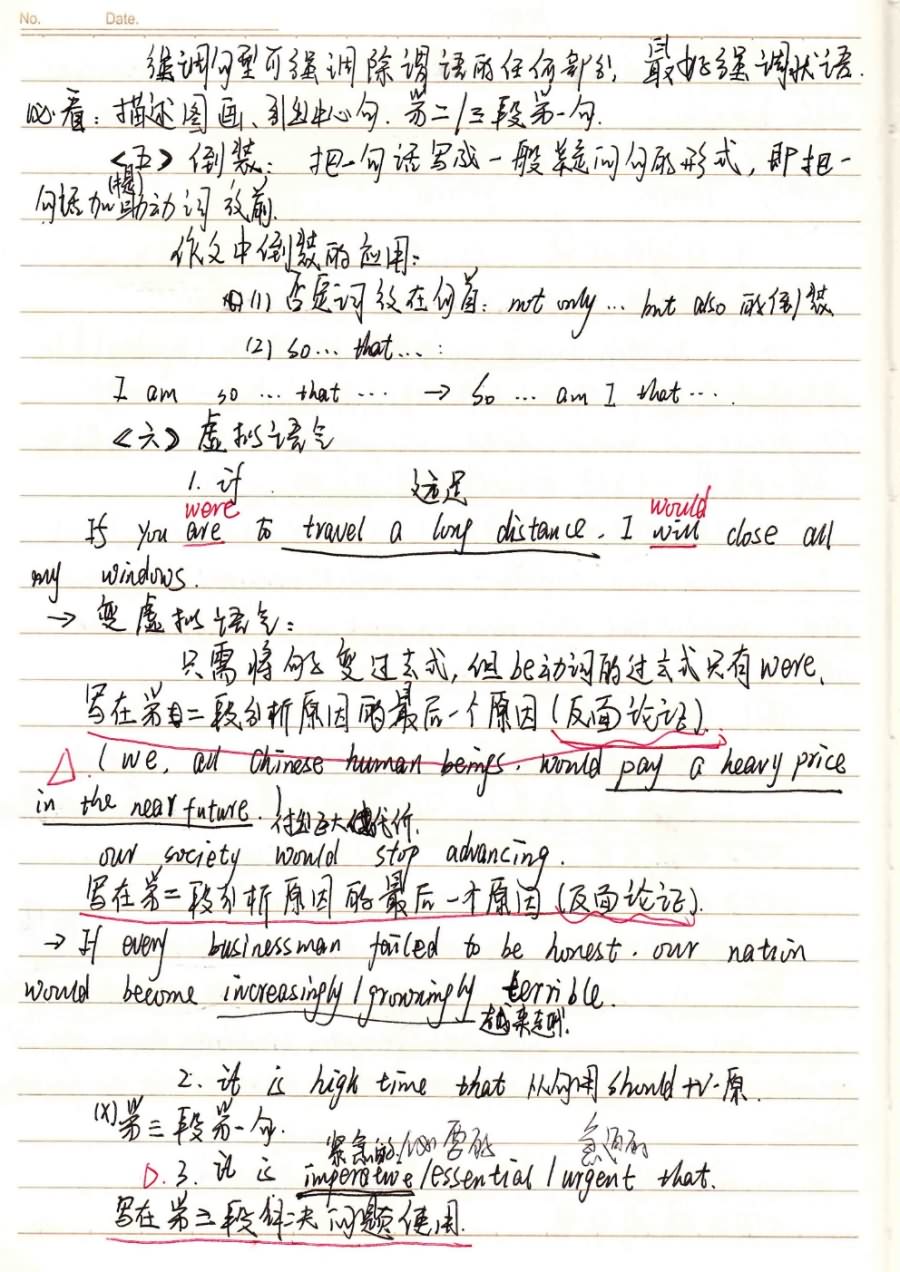 No. Date.
强调句型可强调除谓语的任何部分，最好强调状语.
必看：描述图画、引出中心句. 第二/三段第一句.
<五> 倒装：把一句话写成一般疑问句的形式，即把一
句话加(提)助动词放前.
作文中倒装的应用：
(1) 否定词放在句首：not only … but also 的倒装
(2) so … that … :
I am so … that … → So … am I that ….
<六> 虚拟语气
1. if 遥远
were would
If you are to travel a long distance. I will close all
my windows.
→ 变虚拟语气：
只需将句子变过去式，但be动词的过去式只有were.
写在第二段分析原因的最后一个原因 (反面论证).
△. (we, all Chinese human beings, would pay a heavy price
in the near future.) 付出巨大代价.
our society would stop advancing.
写在第二段分析原因的最后一个原因 (反面论证).
→ If every businessman failed to be honest. our nation
would become increasingly / growningly terrible.
越来越
2. it is high time that 从句用should+V-原.
(X) 第三段第一句.
紧急的/必要的 急迫的
D. 3. it is imperative /essential / urgent that.
写在第三段解决问题使用.